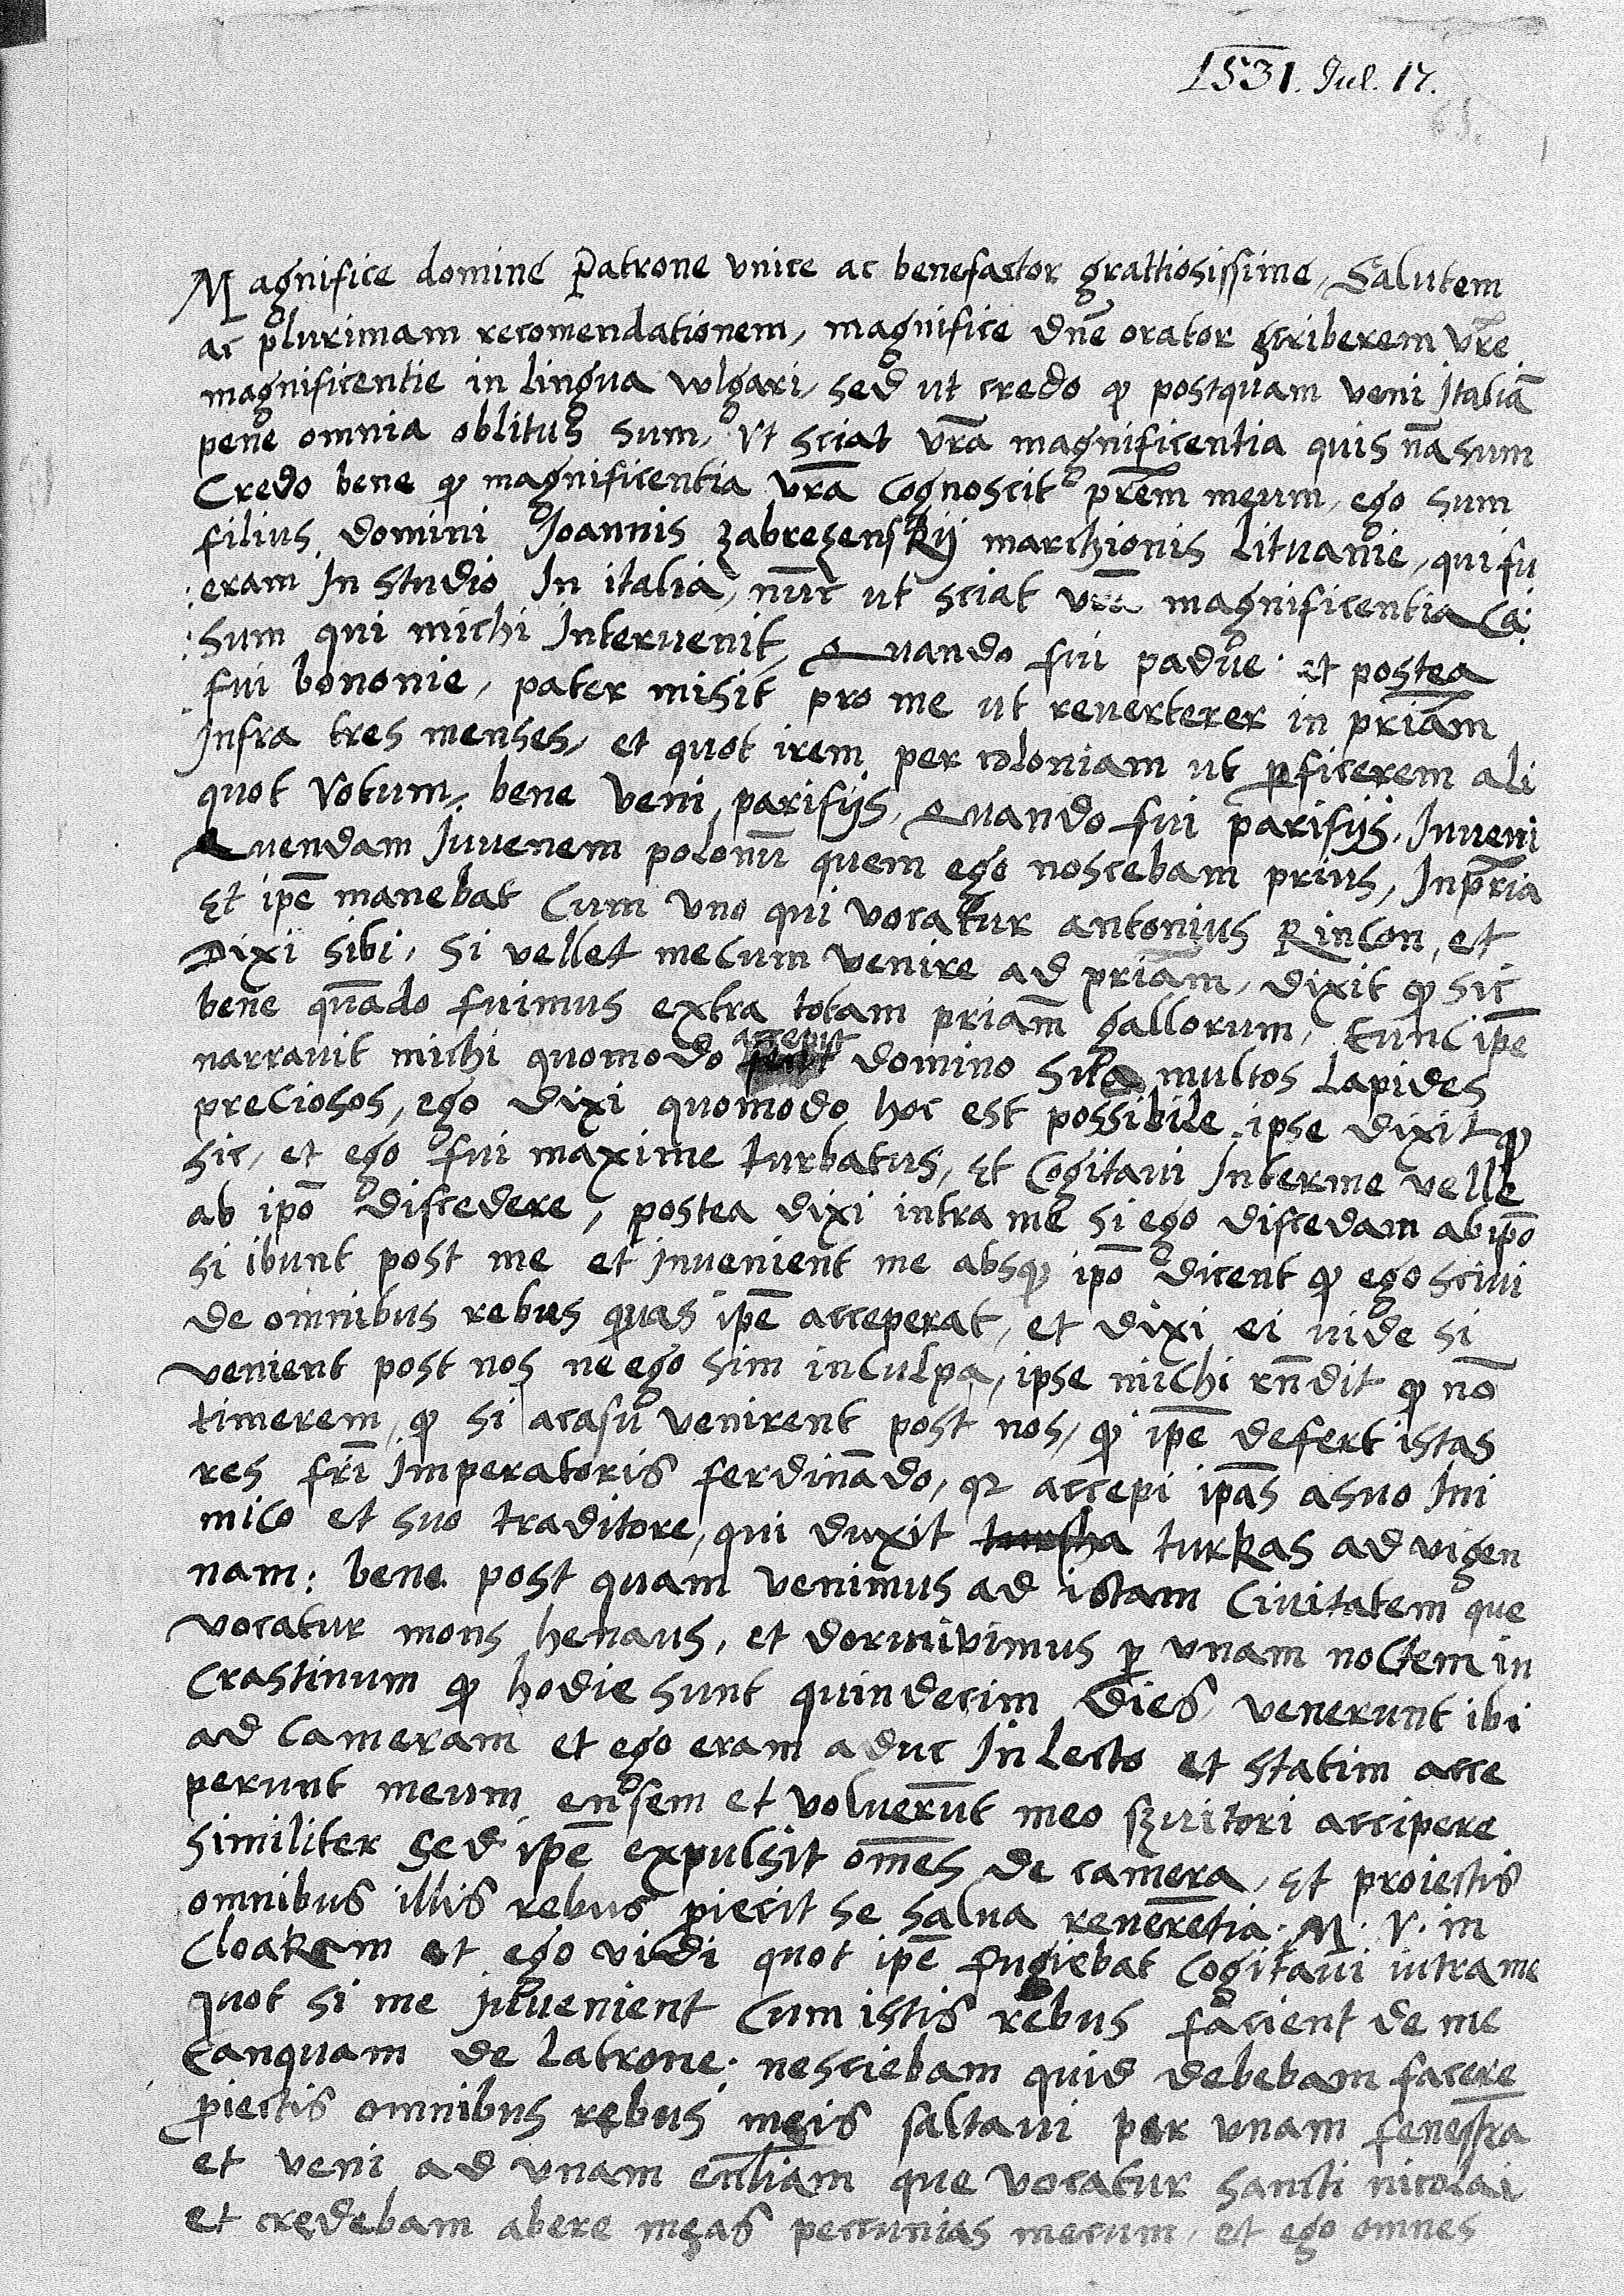 1531. Jul. 17.
Magnifice domine Patrone vnice ac benefactor grattiosissime, Salutem
ac plurimam recomendationem, magnifice dnē orator scriberem vrē
magnificentie in lingua wlgari, sed ut credo ꝙ postquam veni Italiā
pene omnia oblitus sum, Vt sciat vrā magnificentia quis nā sum
Credo bene ꝙ magnificentia vrā Cognoscit prēm meum, ego sum
filius domini Joannis zabrezenskij marchionis Lituanie, qui fu
eram In studio In italia, nūc ut sciat vrā magnificentia Ca
sum qui michi Interuenit, Quando fui padue et postea
fui bononie, pater misit pro me ut reuerterer in priām
Infra tres menses, et quot irem per coloniam ut ꝑficerem ali
quot votum, bene veni parisijs, Quando fui parisijs, Inveni
Quendam Juvenem polonū quem ego noscebam prius, In pria
Et ipē manebat Cum vno qui vocatur antonius Rincon, et
Dixi sibi, si vellet mecum venire ad priām, dixit ꝙ sic
bene quādo fuimus extra totam priam̄ gallorum, tunc ipē
narrauit michi quomodo accepit domino suo multos Lapides
preciosos, ego dixi quomodo hoc est possibile ipse dixit ꝙ
sic, et ego fui maxime turbatus, Et Cogitaui Inter me velle
ab ipō discedere, postea dixi intra me si ego discedam ab ipō
si ibunt post me et Invenient me absꝙ ipō dicent ꝙ ego sciui
de omnibus rebus quas ipē acceperat, et dixi ei uide si
venient post nos ne ego sim in culpa, ipse michi rn̄dit ꝙ nō
timerem, ꝙ si acasu venirent post nos, ꝙ ipē defert istas
res frī Imperatoris ferdinādo, qz accepi ipās a suo Ini
mico et suo traditore, qui duxit turkas ad vigen
nam: bene post quam venimus ad istam Ciuitatem que
vocatur mons henaus, et dormivimus ꝑ vnam noctem in
Crastinum ꝙ hodie sunt quindecim dies, venerunt ibi
ad Cameram et ego eram aduc In Lecto et statim acce
perunt meum ensem et voluerūt meo szuitori accipere
similiter Sed ipē expulsit om̄es de camera, Et proiectis
omnibus illis rebus ꝓiecit se salua reuerētia. M. V. in
Cloakam et ego vidi quot ipē fugiebat Cogitaui intra me
quot si me Invenient Cum istis rebus facient de me
tanquam de Latrone. nesciebam quid debebam facere
ꝓiectis omnibus rebus meis saltaui per vnam fenestrā
et veni ad vnam eccliam que vocatur sancti nicolai
et credebam abere meas peccunias mecum, et ego omnes